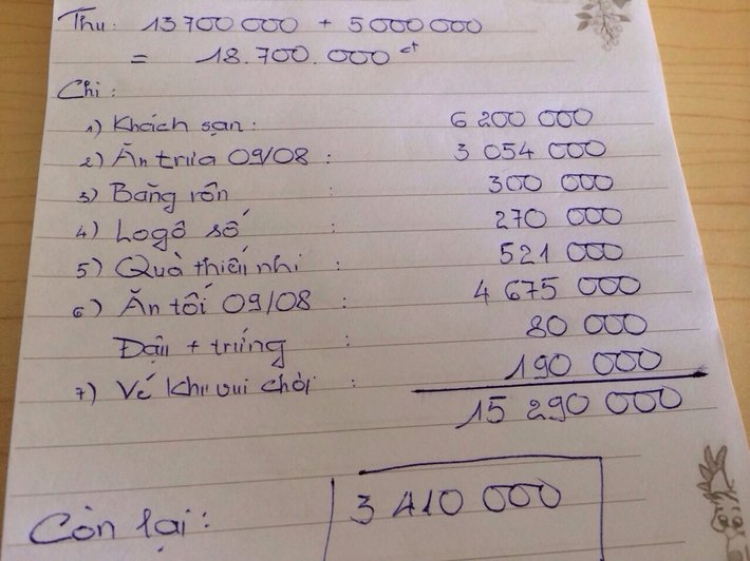 Thu: 13 700 000 + 5 000 000
= 18.700.000 đ
Chi:
1) Khách sạn: 6 200 000
2) Ăn trưa 09/08: 3 054 000
3) Băng rôn : 300 000
4) Logô số : 270 000
5) Quà thiếu nhi : 521 000
6) Ăn tối 09/08 : 4 675 000
Đậu + trứng : 80 000
7) Vé khu vui chơi : 190 000
15 290 000
Còn lại: 3 410 000